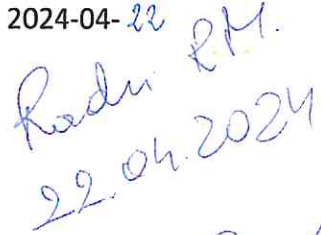 2024-04-22
Radu R.M.
22.04.2024